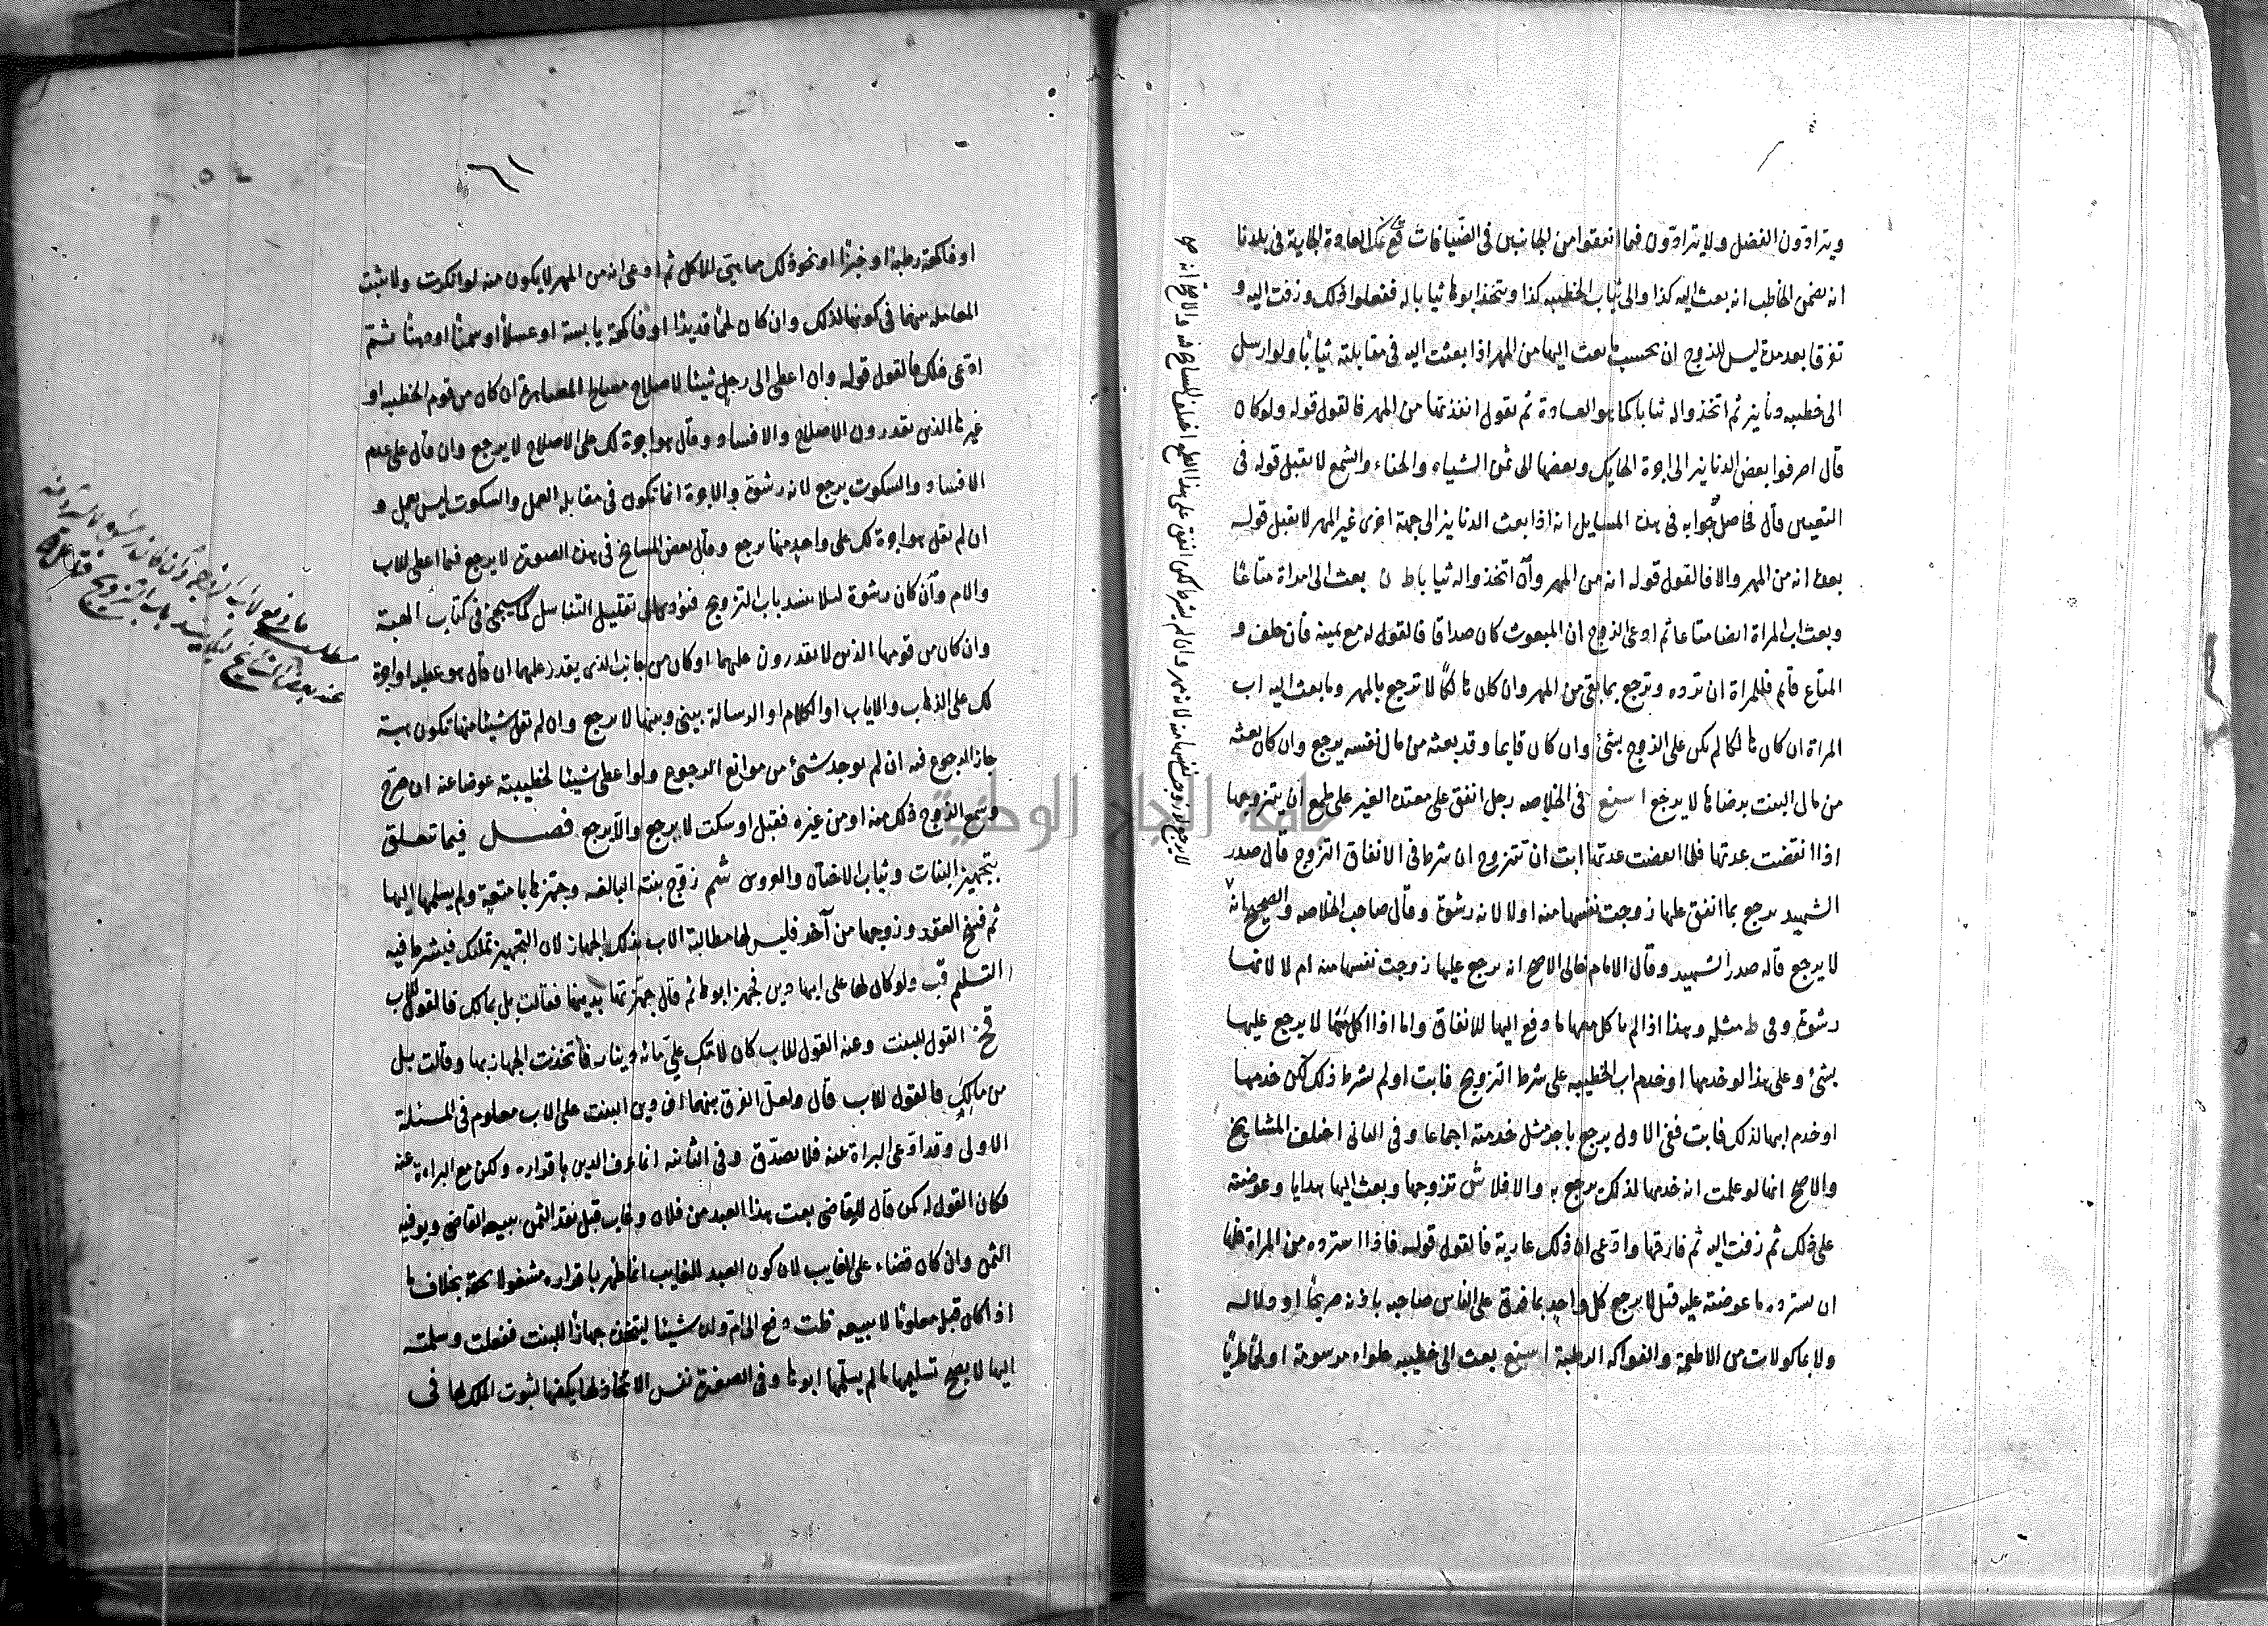 ويترادون الفضل ولا يترادون فيما انفقوا من الجانبين فى الضيافات قع تلك العادة الجارية فى بلدنا
انه يضمن الخاطب انه بعث اليه كذا والى ثياب الخطيبه كذا ويتخذ ابوها ثيابا له ففعلوا ذلك وزفت اليه و
تفرقا بعد مدة ليس للزوج ان يحسب ما بعث اليها من المهر اذا بعثت اليه فى مقابلته ثيابا ولو ارسل
الى خطيبه دنانير ثم اتخذوا له ثيابا كما هو العادة ثم يقول انفذتها من المهر فالقول قوله ولو كان
قال اصرفوا بعض الدنانير الى اجرة الحايك وبعضها الى ثمن الشياه والحناء والشمع لا يقبل قوله فى
التعيين قال فحاصل جوابه فى هذه المسايل انه اذا بعث الدنانير الى جهة اخرى غير المهر لا يقبل قوله
بعده انه من المهر والا فالقول قوله انه من المهر وان اتخذوا له ثيابا ط ن بعث الى امراة متاعا
وبعث اب المراة ايضا متاعا ثم ادعى الزوج ان المبعوث كان صداقا فالقول له مع يمينه فان حلف و
المتاع قايم فللمراة ان ترده وترجع بما بقى من المهر وان كان هالكا لا ترجع بالمهر وما بعث اليه اب
المراة ان كان هالكا لم يكن على الزوج بشئ وان كان قايما وقد بعثه من مال نفسه يرجع وان كان بعثه
من مال البنت برضاها لا يرجع فى الخلاصه رجل انفق على معتدة الغير على طمع ان يتزوجها
اذا انقضت عدتها فلما انقضت عدتها ابت ان تتزوج ان شرط فى الانفاق التزوج قال صدر
الشهيد يرجع بما انفق عليها زوجت نفسها منه اولا لانه رشوة وقال صاحب الخلاصه والصحيح انه
لا يرجع قاله صدر الشهيد وقال الامام خالى الاصح انه يرجع عليها زوجت نفسها منه ام لا لانها
رشوة وفى ط مثله وهذا اذا لم ياكل معها ما دفع اليها للانفاق واما اذا اكل معها لا يرجع عليها
بشئ وعلى هذا لو خدمها او خدم اب الخطيبه على شرط التزويج فابت او لم يشرط ذلك لكن خدمها
او خدم ابيها لذلك فابت ففى الاول يرجع باجر مثل خدمته اجماعا وفى الثانى اختلف المشايخ
والاصح انها لو علمت انه خدمها لذلك يرجع به والا فلا ش تزوجها وبعث اليها هدايا وعوضته
على ذلك ثم زفت اليه ثم فارقها وادعى ان ذلك عارية فالقول قوله فاذا استرده من المراة فلها
ان تسترد ما عوضته عليه قيل لا يرجع كل واحد بما فرق على الناس صاحبه باذنه صريحا او دلاله
ولا بماكولات من الاطعمة والفواكه الرطبة بعث الى خطيبه حلواء مرسومة او لحما طريا
لا يرجع لو زوجت نفسها منه لانه مهر وان لم يشرط لكن انفق على هذا الطمع اختلف المشايخ فيه والاصح انه
او فاكهة رطبة او خبزا او نحو ذلك مما يهيئ للاكل ثم ادعى انه من المهر لا يكون منه لو انكرت ولا يثبت
المعامله بينهما فى كونها لذلك وان كان لحما قديدا او فاكهة يابسة او عسلا او سمنا او دهنا ثم
ادعى ذلك فالقول قوله وان اعطى الى رجل شيئا لاصلاح مصالح المصاهرة ان كان من قوم الخطيبه او
غيرها الذين يقدرون الاصلاح والافساد وقال هو اجرة لك على الاصلاح لا يرجع وان قال على عدم
الافساد والسكوت يرجع لانه رشوة والاجرة انما تكون فى مقابله العمل والسكوت ليس بعمل و
ان لم يقل هو اجرة لك على واحد منهما يرجع وقال بعض المشايخ فى هذه الصورة لا يرجع فيما اعطى للاب
والام وان كان رشوة لئلا ينسد باب التزويج فيؤدى الى تقليل التناسل كما سيجئ فى كتاب الهبة
وان كان من قومها الذين لا يقدرون عليهما او كان من جانب الذى يقدر عليهما ان قال هو عطيه او اجرة
لك على الذهاب والاياب او الكلام او الرسالة بينى وبينها لا يرجع وان لم يقل شيئا منها تكون هبة
جاز الرجوع فيه ان لم يوجد شئ من موانع الرجوع ولو اعطى شيئا لخطيبته عوضا عنه ان صرح
وسمع الزوج ذلك منه او من غيره فقبل او سكت لا يرجع والا يرجع فصل فيما تعلق
بتجهيز البنات وثياب الاختان والعروس شم زوج بنته البالغه وجهزها بامتعة ولم يسلمها اليها
ثم فسخ العقد وزوجها من آخر فليس لها مطالبة الاب بذلك الجهاز لان التجهيز تمليك فيشترط فيه
التسليم قب ولو كان لها على ابيها دين فجهز ابوها ثم قال جهزتها بدينها فقالت بل بمالك فالقول للاب
قخ القول للبنت وعنه القول للاب كان لامك على مائة دينار فاتخذت الجهاز بها وقالت بل
من مالك فالقول للاب قال ولعل الفرق بينهما ان دين البنت على الاب معلوم فى المسئلة
الاولى وقد ادعى البراة عنه فلا يصدق وفى الثانيه انما عرف الدين باقراره ولكن مع البراءة عنه
فكان القول له كمن قال للقاضى بعت هذا العبد من فلان وغاب قبل نقد الثمن يبيعه القاضى ويوفيه
الثمن وان كان قضاء على الغايب لان كون العبد للغايب انما ظهر باقراره مشغولا بحقه بخلاف ما
اذا كان قبل معلوما لا يبيعه ظت دفع الى ام ولده شيئا ليتخذه جهازا للبنت ففعلت وسلمته
اليها لا يصح تسليمها ما لم يسلمها ابوها وفى الصغيرة نفس الاتخاذ لها يكفيها لثبوت الملك لها فى